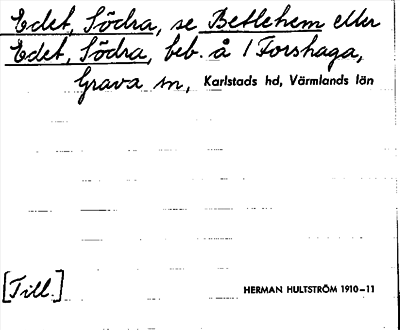 Edet, Södra, se Betlehem eller
Edet, Södra, beb. å 1 Forshaga,
Grava sn, Karlstads hd, Värmlands län
[Till.]
HERMAN HULTSTRÖM 1910-11